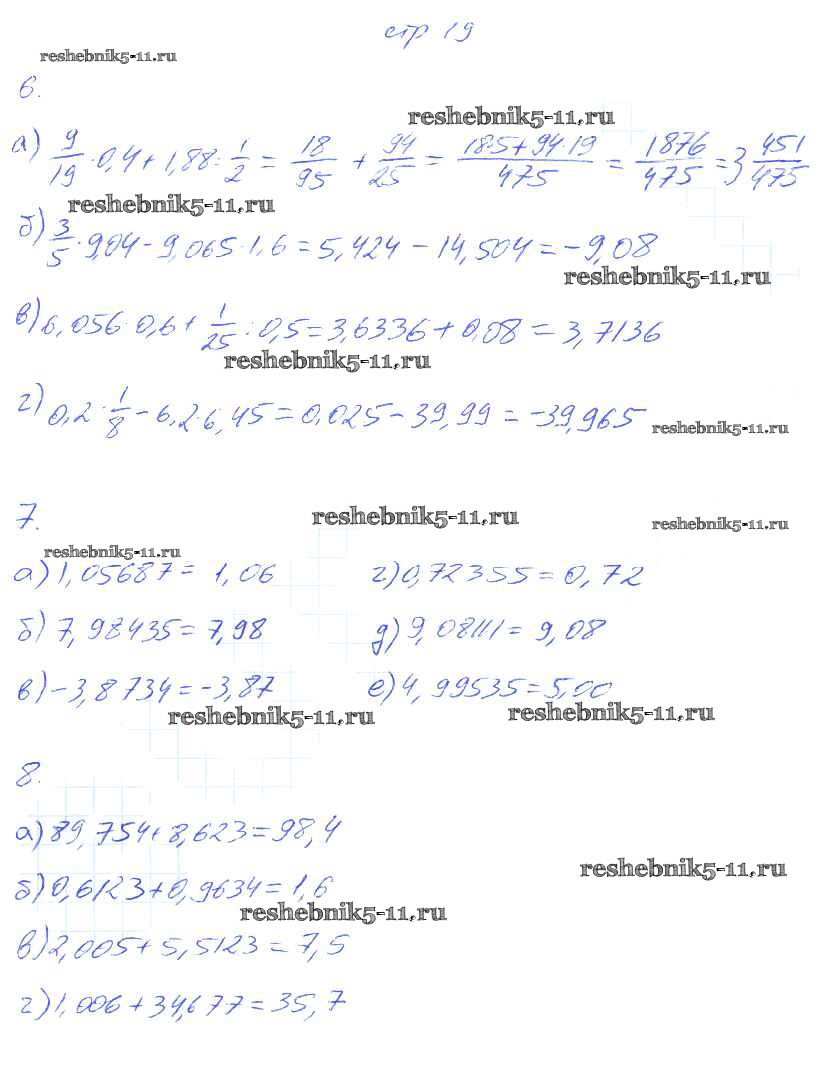 стр 19
reshebnik5-11.ru
6.
reshebnik5-11.ru
а) 9/19 · 0,4 + 1,88 : 1/2 = 18/95 + 94/25 = (18·5+94·19)/475 = 1876/475 = 3 451/475
reshebnik5-11.ru
б) 3/5 · 9,04 - 9,065 · 1,6 = 5,424 - 14,504 = -9,08
reshebnik5-11.ru
в) 6,056 · 0,6 + 1/25 : 0,5 = 3,6336 + 0,08 = 3,7136
reshebnik5-11.ru
г) 0,2 · 1/8 - 6,2 · 6,45 = 0,025 - 39,99 = -39,965
reshebnik5-11.ru
7.
reshebnik5-11.ru
reshebnik5-11.ru
reshebnik5-11.ru
а) 1,05687 = 1,06
г) 0,72355 = 0,72
б) 7,98435 = 7,98
д) 9,08111 = 9,08
в) -3,8734 = -3,87
е) 4,99535 = 5,00
reshebnik5-11.ru
reshebnik5-11.ru
8.
а) 89,754 + 8,623 = 98,4
reshebnik5-11.ru
б) 0,6123 + 0,9634 = 1,6
reshebnik5-11.ru
в) 2,005 + 5,5123 = 7,5
г) 1,006 + 34,677 = 35,7